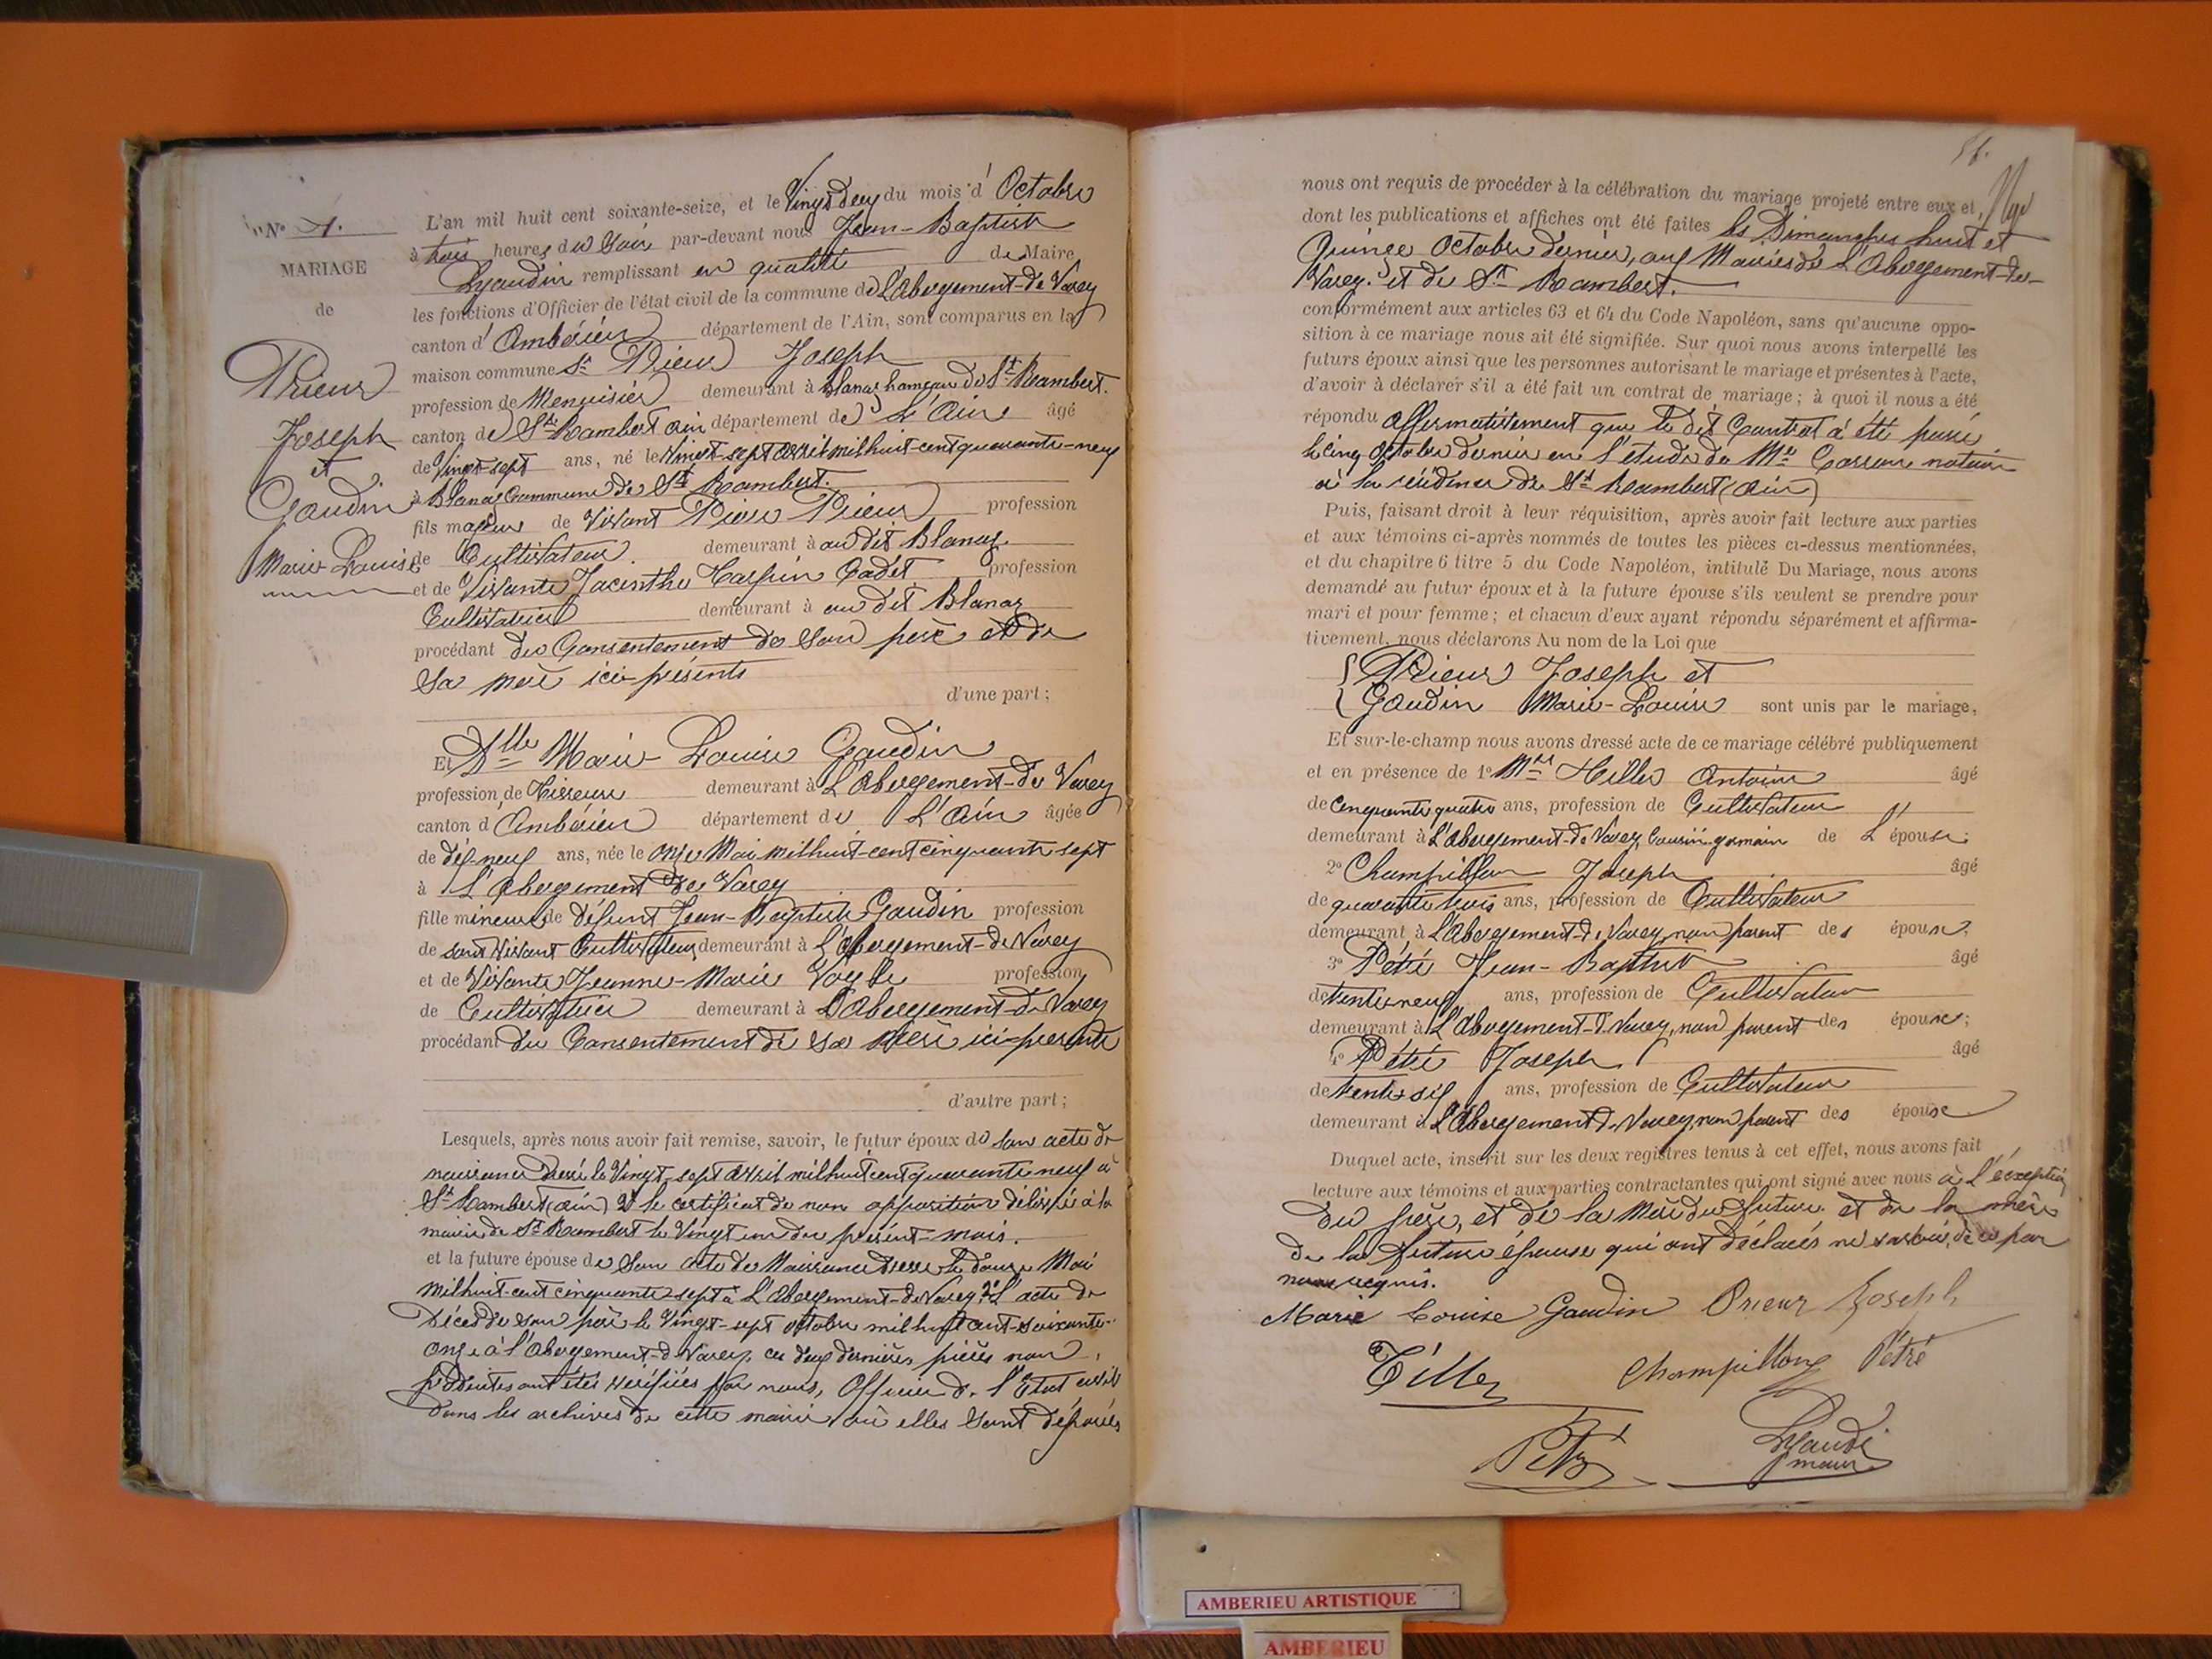 N° 4.
MARIAGE
de
Prieur
Joseph
et
Gaudin
Marie Louise
L'an mil huit cent soixante-seize, et le Vingt deux du mois d'Octobre
à trois heures du Soir par-devant nous Jean-Baptiste
Lyaudin remplissant en qualité de Maire
les fonctions d'Officier de l'état civil de la commune de L'Abergement-de Varey
canton d'Ambérieu département de l'Ain, sont comparus en la
maison commune Sr Prieur Joseph
profession de Menuisier demeurant à Blanaz hameau de St Rambert.
canton de St Rambert ain département de L'Ain âgé
de Vingt-sept ans, né le Vingt-sept avril mil huit-cent quarante-neuf
à Blanaz Commune de St Rambert.
fils majeur de Vivant Pierre Prieur profession
de Cultivateur demeurant à au dit Blanaz.
et de Vivante Jacinthe Cadet profession
Cultivatrice demeurant à au dit Blanaz
procédant du Consentement de Son père et de
Sa mère ici-présents
d'une part ;
Et Dlle Marie-Louise Gaudin
profession de Tisseuse demeurant à L'Abergement-de Varey
canton d'Ambérieu département de L'Ain âgée
de dix neuf ans, née le onze Mai mil huit-cent cinquante sept
à L'Abergement de Varey
fille mineure de défunt Jean-Baptiste Gaudin profession
de son vivant Cultivateur demeurant à L'Abergement-de Varey
et de Vivante Jeanne-Marie profession
de Cultivatrice demeurant à L'Abergement-de Varey
procédant du Consentement de Sa Mère ici-présente
d'autre part ;
Lesquels, après nous avoir fait remise, savoir, le futur époux de son acte de
naissance dressé le Vingt-sept avril mil huit cent quarante neuf à
St Rambert (ain) 2° le certificat de non opposition délivré à la
mairie de St Rambert le Vingt un du présent mois.
et la future épouse de Son acte de Naissance dressé le douze Mai
mil huit-cent cinquante sept à L'Abergement-de Varey 2° L'acte de
Décès de son père le Vingt-sept Octobre mil huit cent-soixante-
onze à l'Abergement-de Varey, ces deux dernières pièces non
produites ont étés vérifiées par nous, Officier de l'Etat civil
dans les archives de cette mairie où elles sont déposées
51.
nous ont requis de procéder à la célébration du mariage projeté entre eux et,
dont les publications et affiches ont été faites les Dimanches huit et
Quinze Octobre dernier, aux Mairies de L'Abergement-de-
Varey et de St Rambert.
conformément aux articles 63 et 64 du Code Napoléon, sans qu'aucune oppo-
sition à ce mariage nous ait été signifiée. Sur quoi nous avons interpellé les
futurs époux ainsi que les personnes autorisant le mariage et présentes à l'acte,
d'avoir à déclarer s'il a été fait un contrat de mariage ; à quoi il nous a été
répondu affirmativement que le dit Contrat a été passé
le cinq Octobre dernier en l'étude de Me notaire
à la résidence de St Rambert (ain)
Puis, faisant droit à leur réquisition, après avoir fait lecture aux parties
et aux témoins ci-après nommés de toutes les pièces ci-dessus mentionnées,
et du chapitre 6 titre 5 du Code Napoléon, intitulé Du Mariage, nous avons
demandé au futur époux et à la future épouse s'ils veulent se prendre pour
mari et pour femme ; et chacun d'eux ayant répondu séparément et affirma-
tivement, nous déclarons Au nom de la Loi que
Prieur Joseph et
Gaudin Marie-Louise sont unis par le mariage,
Et sur-le-champ nous avons dressé acte de ce mariage célébré publiquement
et en présence de 1° Antoine âgé
de Cinquante quatre ans, profession de Cultivateur
demeurant à L'Abergement-de Varey Cousin germain de L'épouse ;
2° Champillon Joseph âgé
de quarante trois ans, profession de Cultivateur
demeurant à L'Abergement-de Varey non parent des époux ;
3° Pétré Jean-Baptiste âgé
de trente neuf ans, profession de Cultivateur
demeurant à L'Abergement-de Varey, non parent des époux ;
4° Pétré Joseph âgé
de trente six ans, profession de Cultivateur
demeurant à L'Abergement de Varey non parent des époux
Duquel acte, inscrit sur les deux registres tenus à cet effet, nous avons fait
lecture aux témoins et aux parties contractantes qui ont signé avec nous à L'éxception
du père, et de la Mère du futur et de la mère
de la future épouse qui ont déclarés ne savoir, de ce par
nous requis.
Marie Louise Gaudin Prieur Joseph
Tiller Champillon Pétré
Pétré Lyaudi
maire
AMBERIEU ARTISTIQUE
AMBERIEU